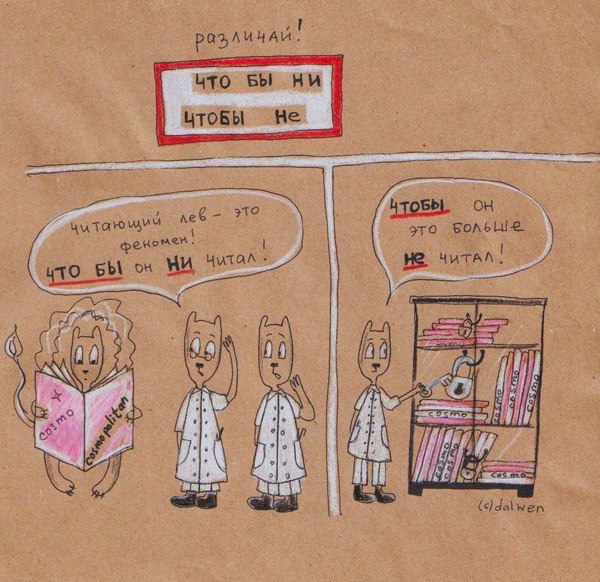 различай!
что бы ни
чтобы не
читающий лев - это
феномен!
что бы он ни читал!
чтобы он
это больше
не читал!
cosmo
cosmopolitan
cosmo
cosmo
cosmo
cosmo
cosmo
cosmo
(c)dalwen